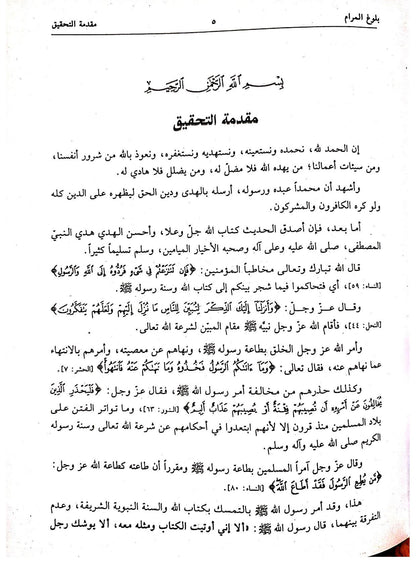 بلوغ المرام ٥ مقدمة التحقيق
بِسْمِ اللَّهِ الرَّحْمَٰنِ الرَّحِيمِ
مقدمة التحقيق
إن الحمد لله، نحمده ونستعينه، ونستهديه ونستغفره، ونعوذ بالله من شرور أنفسنا،
ومن سيئات أعمالنا؛ من يهده الله فلا مضلّ له، ومن يضلل فلا هادي له.
وأشهد أن محمداً عبده ورسوله، أرسله بالهدى ودين الحق ليظهره على الدين كله
ولو كره الكافرون والمشركون.
أما بعد، فإن أصدق الحديث كتاب الله جلّ وعلا، وأحسن الهدي هدي النبيّ
المصطفى، صلى الله عليه وعلى آله وصحبه الأخيار الميامين، وسلم تسليماً كثيراً.
قال الله تبارك وتعالى مخاطباً المؤمنين: ﴿فَإِن تَنَٰزَعْتُمْ فِي شَىْءٍ فَرُدُّوهُ إِلَى ٱللَّهِ وَٱلرَّسُولِ﴾
[النساء: ٥٩]، أي فتحاكموا فيما شجر بينكم إلى كتاب الله وسنة رسوله ﷺ.
وقال عزّ وجلّ: ﴿وَأَنزَلْنَآ إِلَيْكَ ٱلذِّكْرَ لِتُبَيِّنَ لِلنَّاسِ مَا نُزِّلَ إِلَيْهِمْ وَلَعَلَّهُمْ يَتَفَكَّرُونَ﴾
[النحل: ٤٤]، فأقام الله عزّ وجل نبيَّه ﷺ مقام المبيّن لشرعة الله تعالى.
وأمر الله عزّ وجل الخلق بطاعة رسوله ﷺ، ونهاهم عن معصيته، وأمرهم بالانتهاء
عما نهاهم عنه، فقال تعالى: ﴿وَمَآ ءَاتَىٰكُمُ ٱلرَّسُولُ فَخُذُوهُ وَمَا نَهَىٰكُمْ عَنْهُ فَٱنتَهُوا۟﴾ [الحشر: ٧].
وكذلك حذرهم من مخالفة أمر رسول الله ﷺ، فقال عزّ وجل: ﴿فَلْيَحْذَرِ ٱلَّذِينَ
يُخَالِفُونَ عَنْ أَمْرِهِۦٓ أَن تُصِيبَهُمْ فِتْنَةٌ أَوْ يُصِيبَهُمْ عَذَابٌ أَلِيمٌ﴾ [النور: ٦٣]، وما تواتر الفتن على
بلاد المسلمين منذ قرون إلا لأنهم ابتعدوا في أحكامهم عن شرعة الله تعالى وسنة رسوله
الكريم صلى الله عليه وآله وسلم.
وقال عزّ وجل آمراً المسلمين بطاعة رسوله ﷺ ومقرراً أن طاعته كطاعة الله عزّ وجل:
﴿مَّن يُطِعِ ٱلرَّسُولَ فَقَدْ أَطَاعَ ٱللَّهَ﴾ [النساء: ٨٠].
هذا، وقد أمر رسول الله ﷺ بالتمسك بكتاب الله والسنة النبوية الشريفة، وعدم
التفرقة بينهما، قال رسول الله ﷺ: «ألا إني أوتيت الكتاب ومثله معه، ألا يوشك رجل